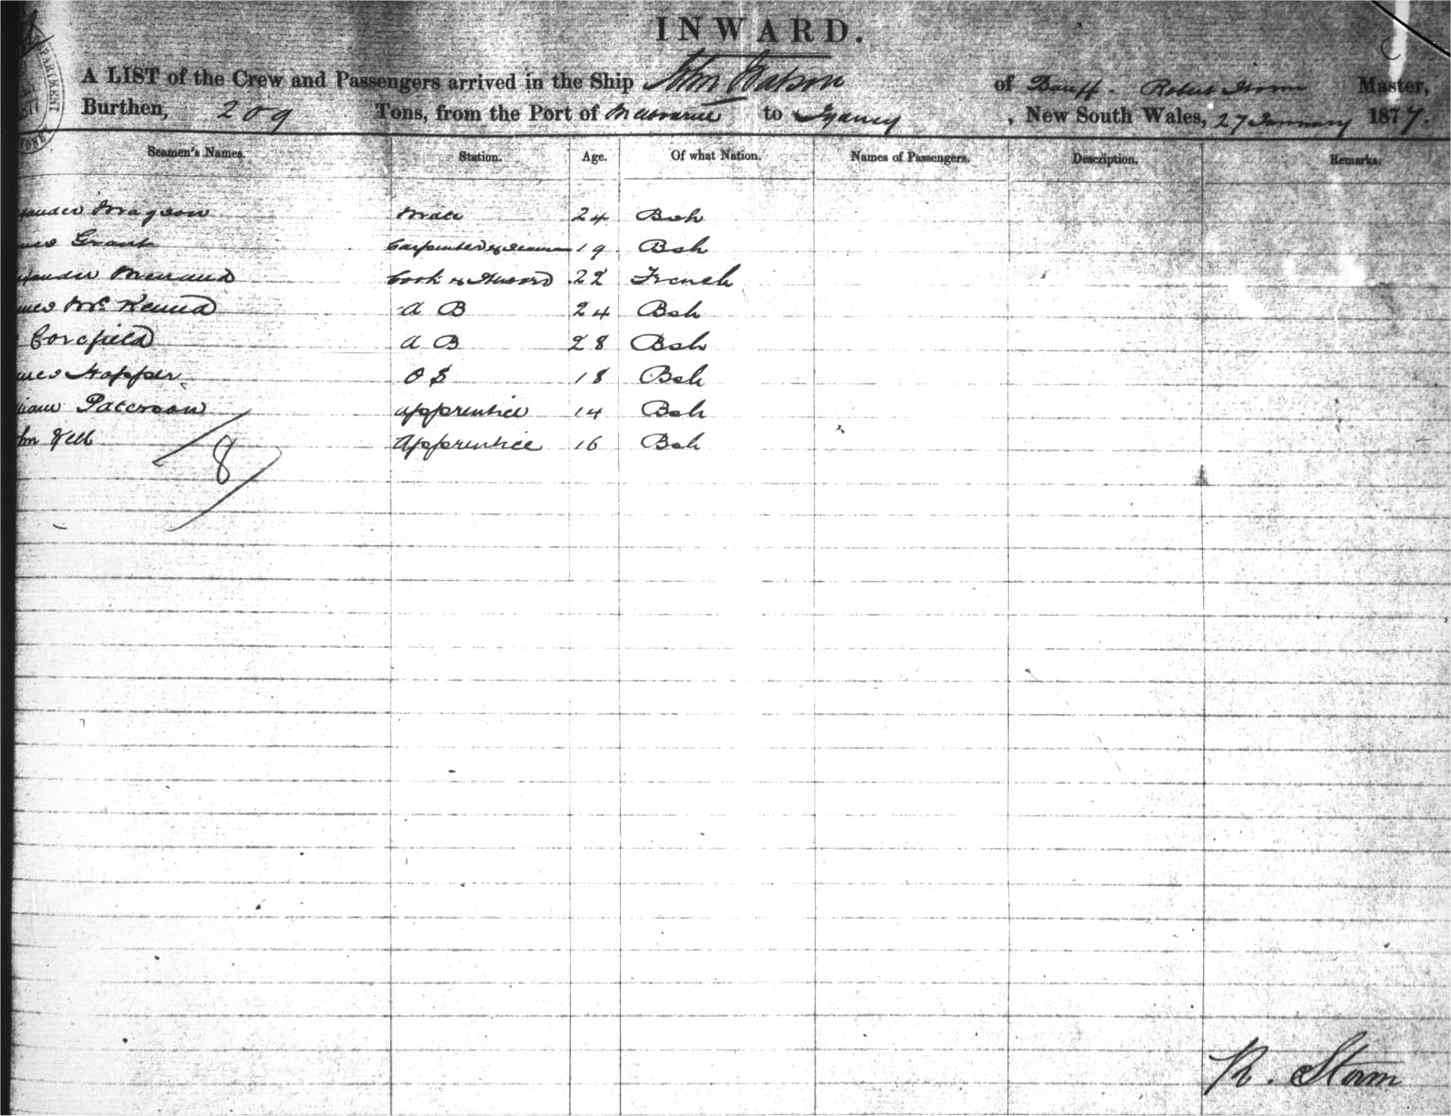 INWARD.
A LIST of the Crew and Passengers arrived in the Ship John Watson of Banff. Robert Storm Master,
Burthen, 209 Tons, from the Port of to Sydney, New South Wales, 27 January 1877.
Seamen's Names. Station. Age. Of what Nation. Names of Passengers. Description. Remarks.
Mate 24 Bsh
Grant Carpenter & Seaman 19 Bsh
Cook & Steward 22 French
Mc Kenna A B 24 Bsh
Corfield A B 28 Bsh
Hopper O S 18 Bsh
Paterson Apprentice 14 Bsh
Apprentice 16 Bsh
8
R. Storm